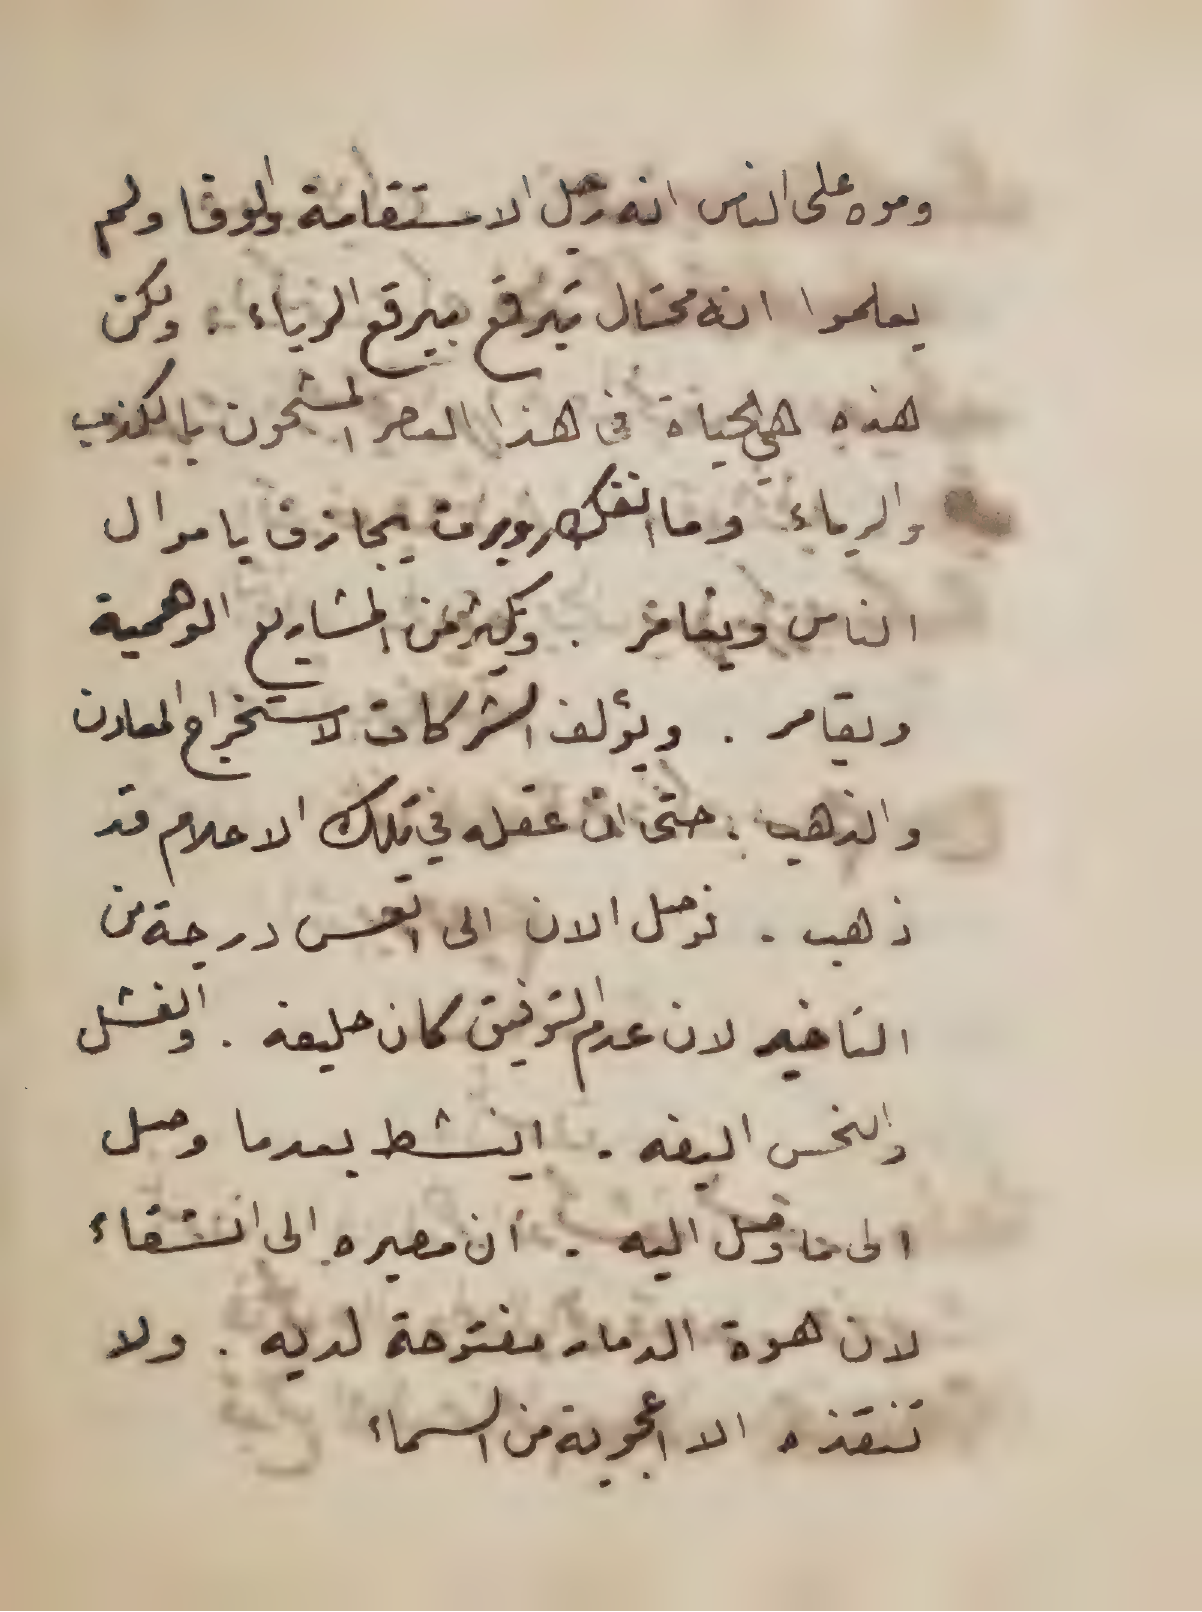 وموه على الناس انه رجل الاستقامة والوفا ولم
يعلموا انه محتال يتبرقع ببرقع الرياء . ولكن
هذه هي الحياة في هذا العصر المشحون بالكذب
والرياء وما انفك روبرت يجازف باموال
الناس ويغامر . ويكثر من المشاريع الوهمية
ويقامر . ويؤلف الشركات لاستخراج المعادن
والذهب . حتى ان عقله في تلك الاحلام قد
ذهب . فوصل الان الى اتعس درجة من
التاخير لان عدم التوفيق كان حليفه . والفشل
والنحس اليفه . اينشط بعدما وصل
الى ما وصل اليه . ان مصيره الى الشقاء
لان هوة الدمار مفتوحة لديه . ولا
تنقذه الا اعجوبة من السماء